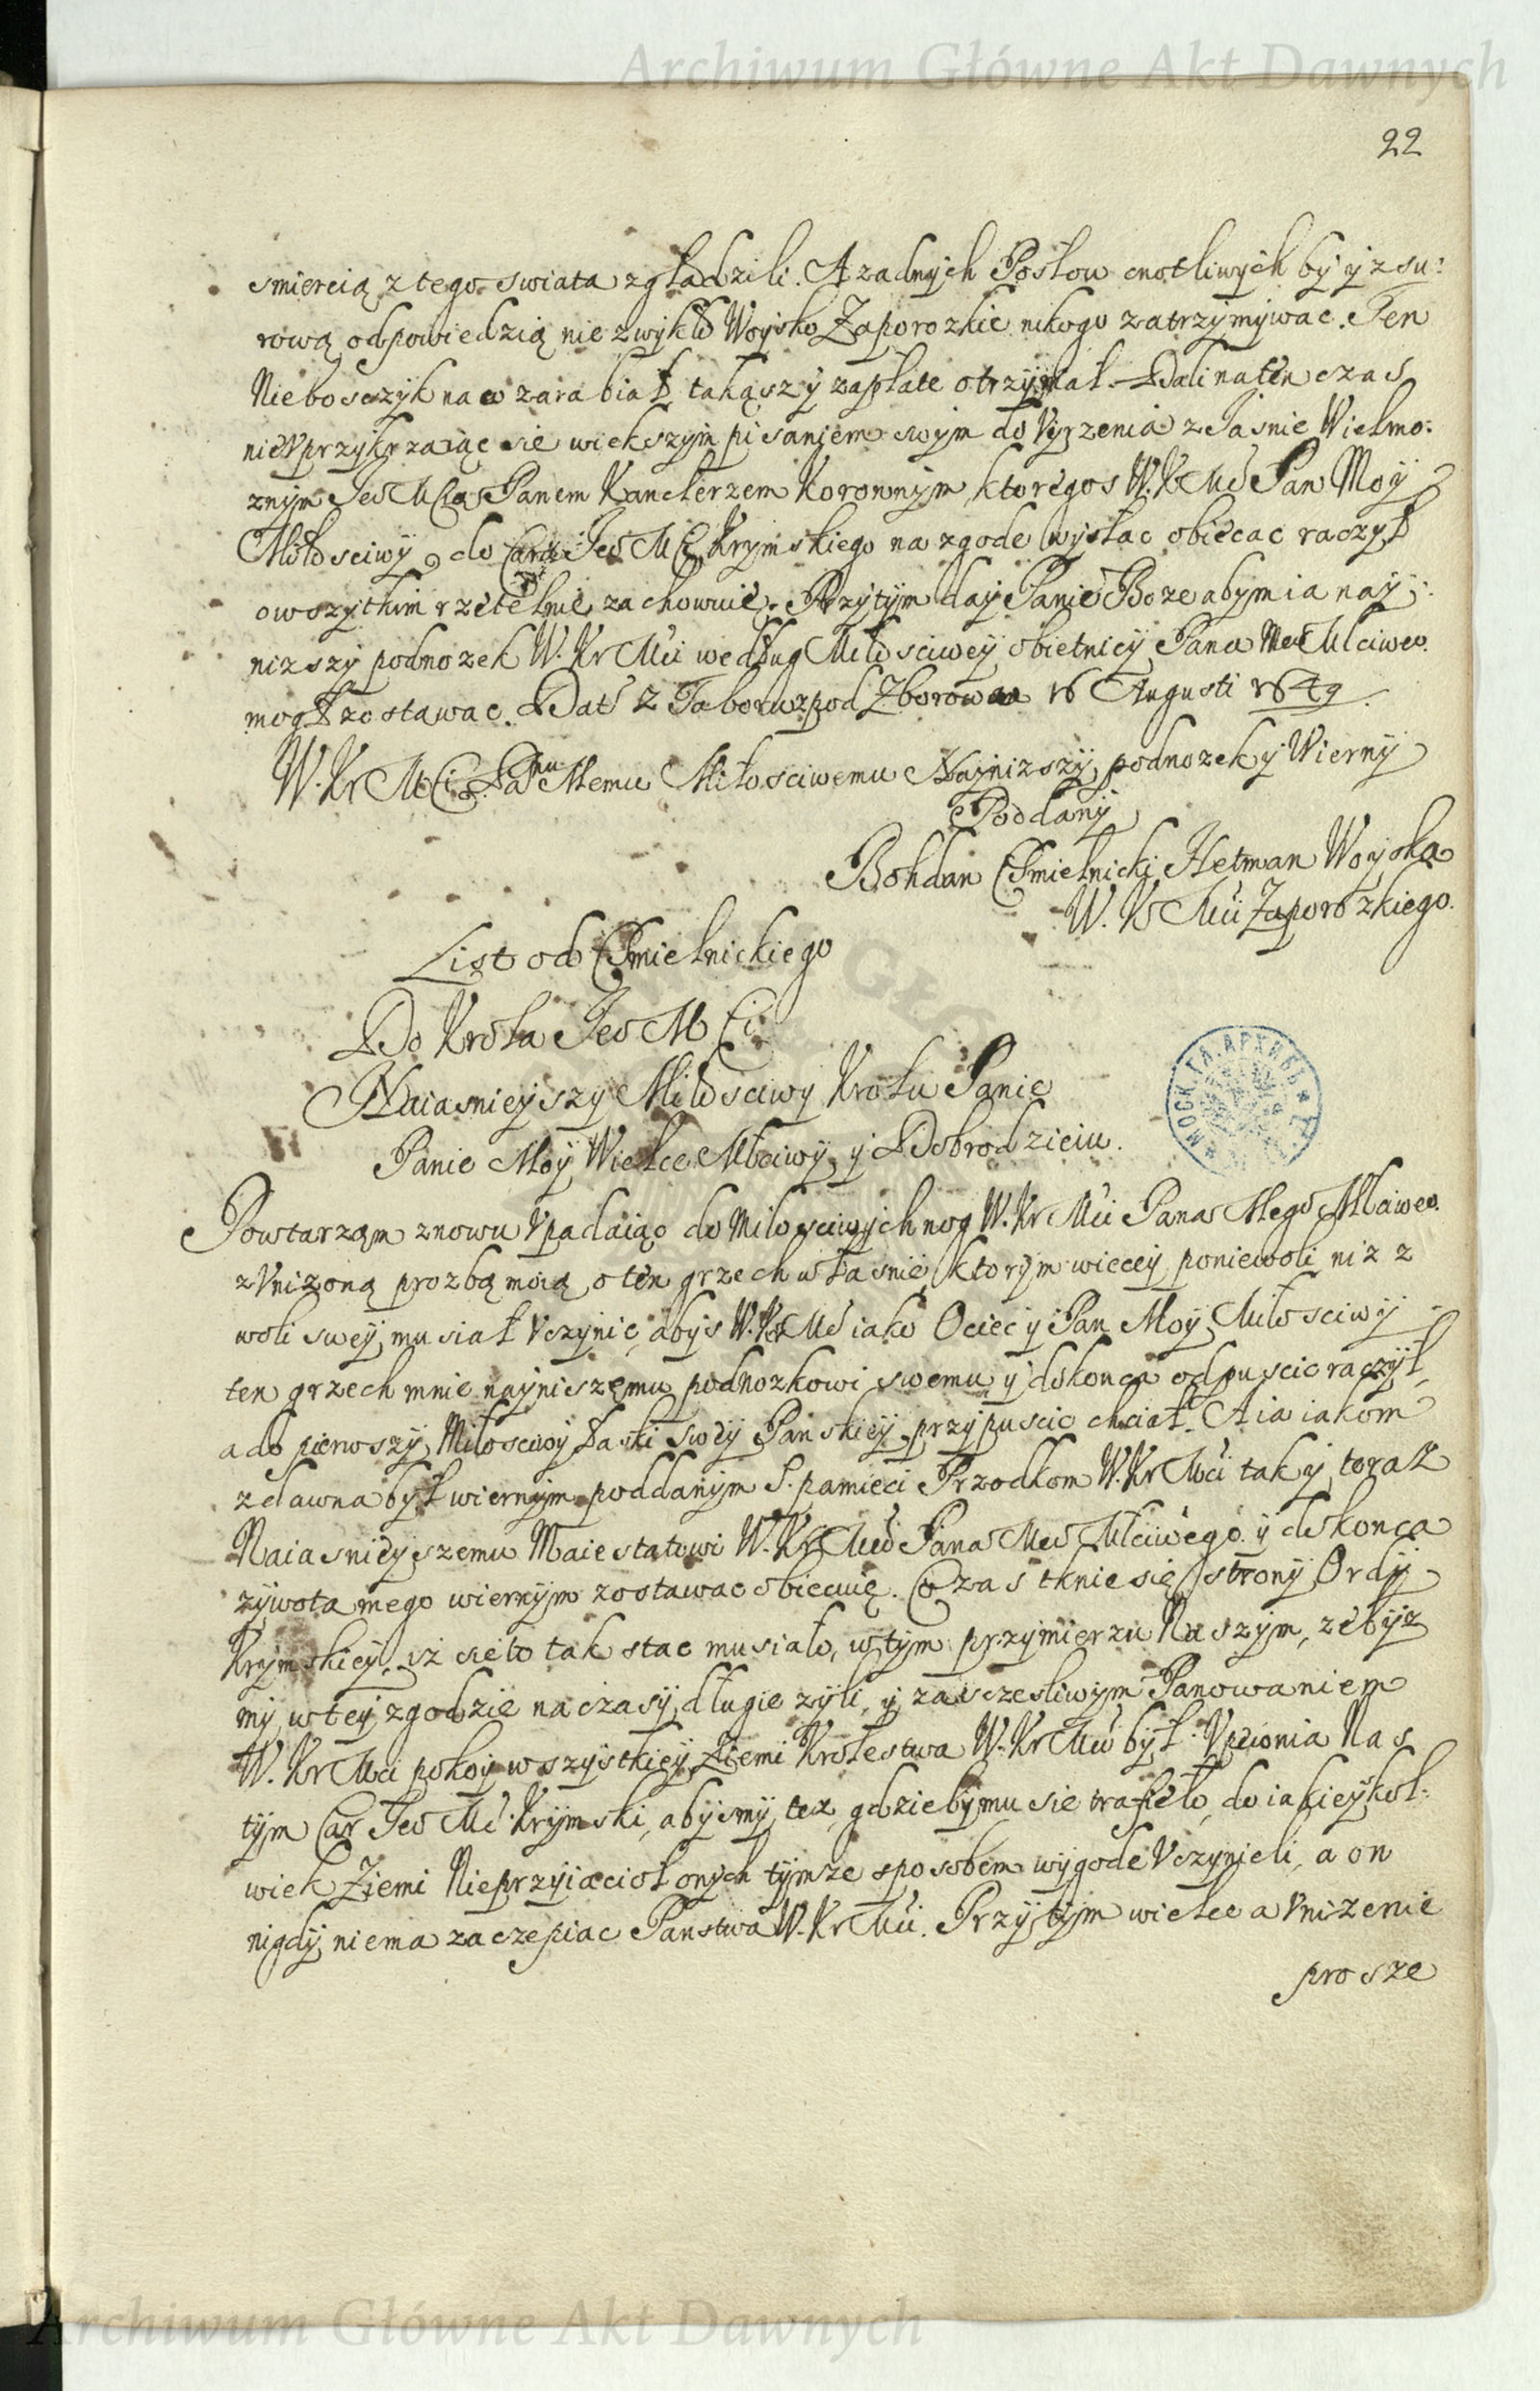 Archiwum Główne Akt Dawnych
22
smiercią z tego swiata zgładzili. A zadnych Posłow cnotliwych by y z su:
rową odpowiedzią nie zwykło Woysko Zaporozkie nikogo zatrzymywac. Ten
Nieboszczyk na co zarabiał, takąsz y zapłate otrzymał. Dali na ten czas
nie Vprzykrzaiąc sie wiekszym pisaniem swym do Vyrzenia z Jasnie Wielmo:
znym Jeo MCią Panem Kanclerzem Koronnym, ktoregos W. K Mć Pan Moy
Miłosciwy, do Cara Jeo MCi Krymskiego na zgode wysłac obiecac raczył
o wszytkim rzetelnie zachowuię. Przytym day Panie Boze abym ia nay:
nizszy podnozek W. Kr Mći według Miłosciwey obietnicy Pana Meo Młciweo.
mogł zostawac. Dat z Taboru zpod Zborowa 16 Augusti 1649.
W. Kr MCi Panu Memu Miłosciwemu Naynizszy podnozek y Wierny
Poddany
Bohdan Chmielnicki Hetman Woyska
W. K Mći Zaporozkiego.
List od Chmielnickiego
Do Krola Jeo MCi
Naiasnieyszy Miłosciwy Krolu Panie
Panie Moy Wielce Młciwy y Dobrodzieiu.
МОСК. ГЛ. АРХИВЪ
Powtarzam znowu Vpadaiąc do Miłosciwych nog W. Kr Mći Pana Mego Młciweo.
z Vnizoną prozbą moią o ten grzech własnie, ktorym wiecey poniewoli niz z
woli swey musiał Vczynic, abys W. Kr Mć iako Ociec y Pan Moy Miłosciwy
ten grzech mnie nayniszemu podnozkowi swemu y dokonca odpuscic raczył,
a do pierwszy Miłosciwy Łaski swey Panskiey przypuscic chciał. A ia iakom
zdawna był wiernym poddanym S. pamieci Przodkom W. Kr Mći tak y teraz
Naiasnieyszemu Maiestatowi W. Kr Mći Pana Meo Młciwego y dokonca
zywota mego wiernym zostawac obiecuię. Co zas tknie się strony Ordy
Krymskiey, iż sie to tak stac musiało, w tym przymierzu Naszym, zebyz
my w tey zgodzie na czasy długie zyli, y za szczesliwym Panowaniem
W. Kr Mći pokoy wszystkiey Ziemi Krolestwa W. Kr Mći był. Vpewnia Nas
tym Car Jeo Mć Krymski, abysmy tez, gdzieby mu sie trafieło, do iakieykol:
wiek Ziemi Nieprzyiaciol onych tymze sposobem wygode Vczynieli, a on
nigdy niema zaczepiac Panstwa W. Kr Mći. Przytym wielce a Vnizenie
prosze
Archiwum Główne Akt Dawnych